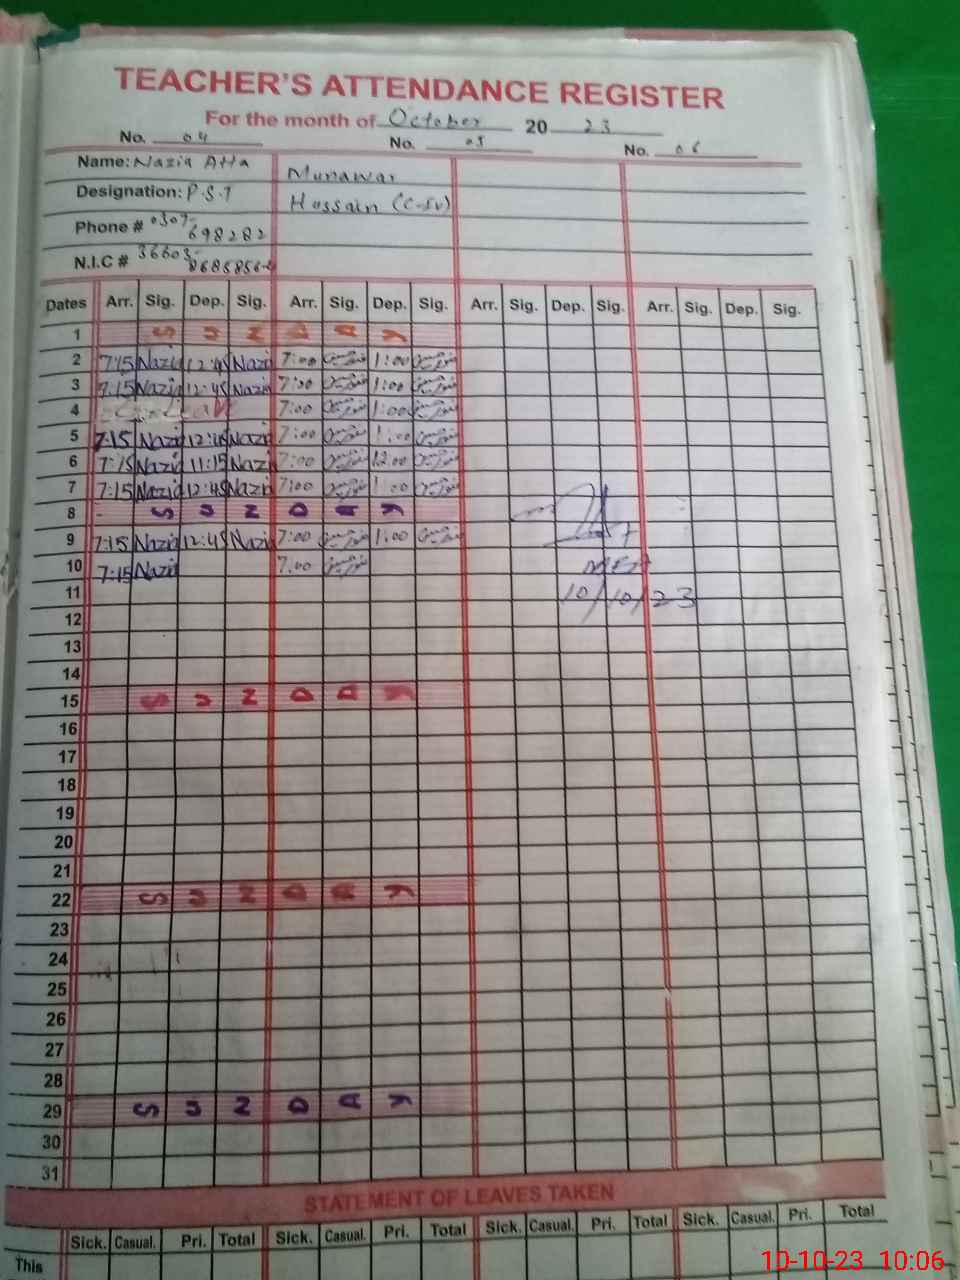 TEACHER'S ATTENDANCE REGISTER
For the month of October 20 23
No. 04 No. 05 No. 06
Name: Nazia Atta Munawar
Designation: P.S.T Hussain (C-IV)
Phone # 0307-698282
N.I.C # 36603-
Dates Arr. Sig. Dep. Sig. Arr. Sig. Dep. Sig. Arr. Sig. Dep. Sig. Arr. Sig. Dep. Sig.
1 S U N D A Y
2 7:15 Nazia 12:45 Nazia 7:00 1:00
3 7:15 Nazia 12:45 Nazia 7:00 1:00
4 Leave 7:00 1:00
5 7:15 Nazia 12:45 Nazia 7:00 1:00
6 7:15 Nazia 11:15 Nazia 7:00 12:00
7 7:15 Nazia 12:45 Nazia 7:00 1:00
8 S U N D A Y
9 7:15 Nazia 12:45 Nazia 7:00 1:00
10 7:15 Nazia 7:00
MEA
11 10/10/23
12
13
14
15 S U N D A Y
16
17
18
19
20
21
22 S U N D A Y
23
24
25
26
27
28
29 S U N D A Y
30
31
STATEMENT OF LEAVES TAKEN
Sick. Casual. Pri. Total Sick. Casual. Pri. Total Sick. Casual. Pri. Total Sick. Casual. Pri. Total
This
10-10-23 10:06